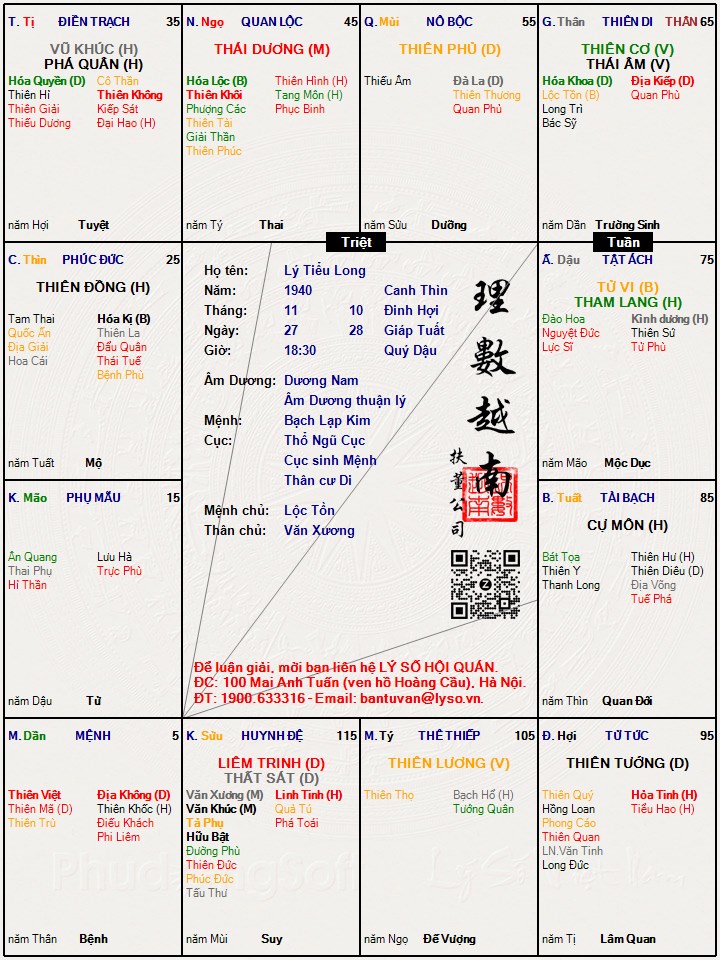 T. Tị ĐIỀN TRẠCH 35
VŨ KHÚC (H)
PHÁ QUÂN (H)
Hóa Quyền (D) Cô Thần
Thiên Hỉ Thiên Không
Thiên Giải Kiếp Sát
Thiếu Dương Đại Hao (H)
năm Hợi Tuyệt
N. Ngọ QUAN LỘC 45
THÁI DƯƠNG (M)
Hóa Lộc (B) Thiên Hình (H)
Thiên Khôi Tang Môn (H)
Phượng Các Phục Binh
Thiên Tài
Giải Thần
Thiên Phúc
năm Tý Thai
Q. Mùi NÔ BỘC 55
THIÊN PHỦ (D)
Thiếu Âm Đà La (D)
Thiên Thương
Quan Phủ
năm Sửu Dưỡng
G. Thân THIÊN DI THÂN 65
THIÊN CƠ (V)
THÁI ÂM (V)
Hóa Khoa (D) Địa Kiếp (D)
Lộc Tồn (B) Quan Phù
Long Trì
Bác Sỹ
năm Dần Trường Sinh
Triệt
Tuần
C. Thìn PHÚC ĐỨC 25
THIÊN ĐỒNG (H)
Tam Thai Hóa Kị (B)
Quốc Ấn Thiên La
Địa Giải Đẩu Quân
Hoa Cái Thái Tuế
Bệnh Phù
năm Tuất Mộ
Họ tên: Lý Tiểu Long
Năm: 1940 Canh Thìn
Tháng: 11 10 Đinh Hợi
Ngày: 27 28 Giáp Tuất
Giờ: 18:30 Quý Dậu
Âm Dương: Dương Nam
Âm Dương thuận lý
Mệnh: Bạch Lạp Kim
Cục: Thổ Ngũ Cục
Cục sinh Mệnh
Thân cư Di
Mệnh chủ: Lộc Tồn
Thân chủ: Văn Xương
理數越南
扶董公司
Z
Để luận giải, mời bạn liên hệ LÝ SỐ HỘI QUÁN.
ĐC: 100 Mai Anh Tuấn (ven hồ Hoàng Cầu), Hà Nội.
ĐT: 1900.633316 - Email: bantuvan@lyso.vn.
Ấ. Dậu TẬT ÁCH 75
TỬ VI (B)
THAM LANG (H)
Đào Hoa Kình dương (H)
Nguyệt Đức Thiên Sứ
Lực Sĩ Tử Phù
năm Mão Mộc Dục
K. Mão PHỤ MẪU 15
Ân Quang Lưu Hà
Thai Phụ Trực Phù
Hỉ Thần
năm Dậu Tử
B. Tuất TÀI BẠCH 85
CỰ MÔN (H)
Bát Tọa Thiên Hư (H)
Thiên Y Thiên Diêu (D)
Thanh Long Địa Võng
Tuế Phá
năm Thìn Quan Đới
M. Dần MỆNH 5
Thiên Việt Địa Không (D)
Thiên Mã (D) Thiên Khốc (H)
Thiên Trù Điếu Khách
Phi Liêm
năm Thân Bệnh
K. Sửu HUYNH ĐỆ 115
LIÊM TRINH (D)
THẤT SÁT (D)
Văn Xương (M) Linh Tinh (H)
Văn Khúc (M) Quả Tú
Tả Phụ Phá Toái
Hữu Bật
Đường Phù
Thiên Đức
Phúc Đức
Tấu Thư
năm Mùi Suy
M. Tý THÊ THIẾP 105
THIÊN LƯƠNG (V)
Thiên Thọ Bạch Hổ (H)
Tướng Quân
năm Ngọ Đế Vượng
Đ. Hợi TỬ TỨC 95
THIÊN TƯỚNG (D)
Thiên Quý Hỏa Tinh (H)
Hồng Loan Tiểu Hao (H)
Phong Cáo
Thiên Quan
LN.Văn Tinh
Long Đức
năm Tị Lâm Quan